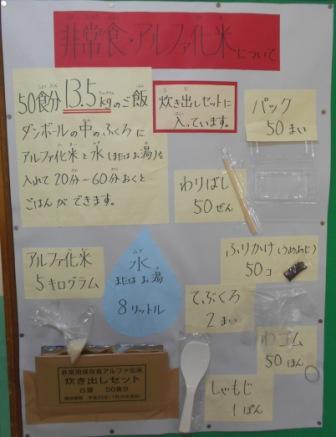 非常食・アルファ化米について
50食分 13.5kgのご飯
ダンボールの中のふくろに
アルファ化米と水(またはお湯)を
入れて20分〜60分おくと
ごはんができます。
炊き出しセットに
入っています。
パック
50まい
わりばし
50ぜん
ふりかけ(うめあじ)
50コ
アルファ化米
5キログラム
水
またはお湯
8リットル
てぶくろ
2まい
わゴム
50ぽん
しゃもじ
1ぽん
非常用保存食アルファ化米
炊き出しセット
50食分